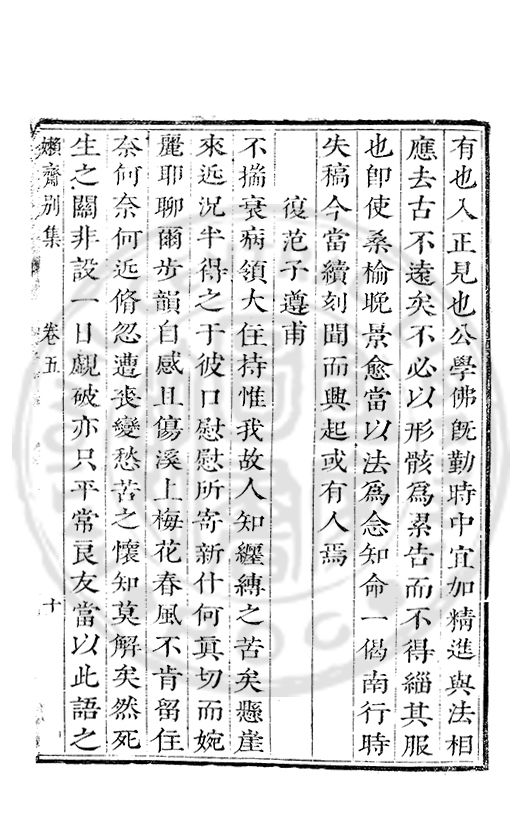 有也入正見也公學佛旣勤時中宜加精進與法相
應去古不遠矣不必以形骸爲累告而不得緇其服
也卽使桑榆晚景愈當以法爲念知命一偈南行時
失稿今當續刻聞而興起或有人焉
復范子遵甫
不揣衰病領大住持惟我故人知纒縛之苦矣懸崖
來近況半得之于彼口慰慰所寄新什何眞切而婉
麗耶聊爾步韻自感且傷溪上梅花春風不肯留住
奈何奈何近脩忽遭喪變愁苦之懷知莫解矣然死
生之關非設一日覷破亦只平常良友當以此語之
嬾齋別集 卷五 十